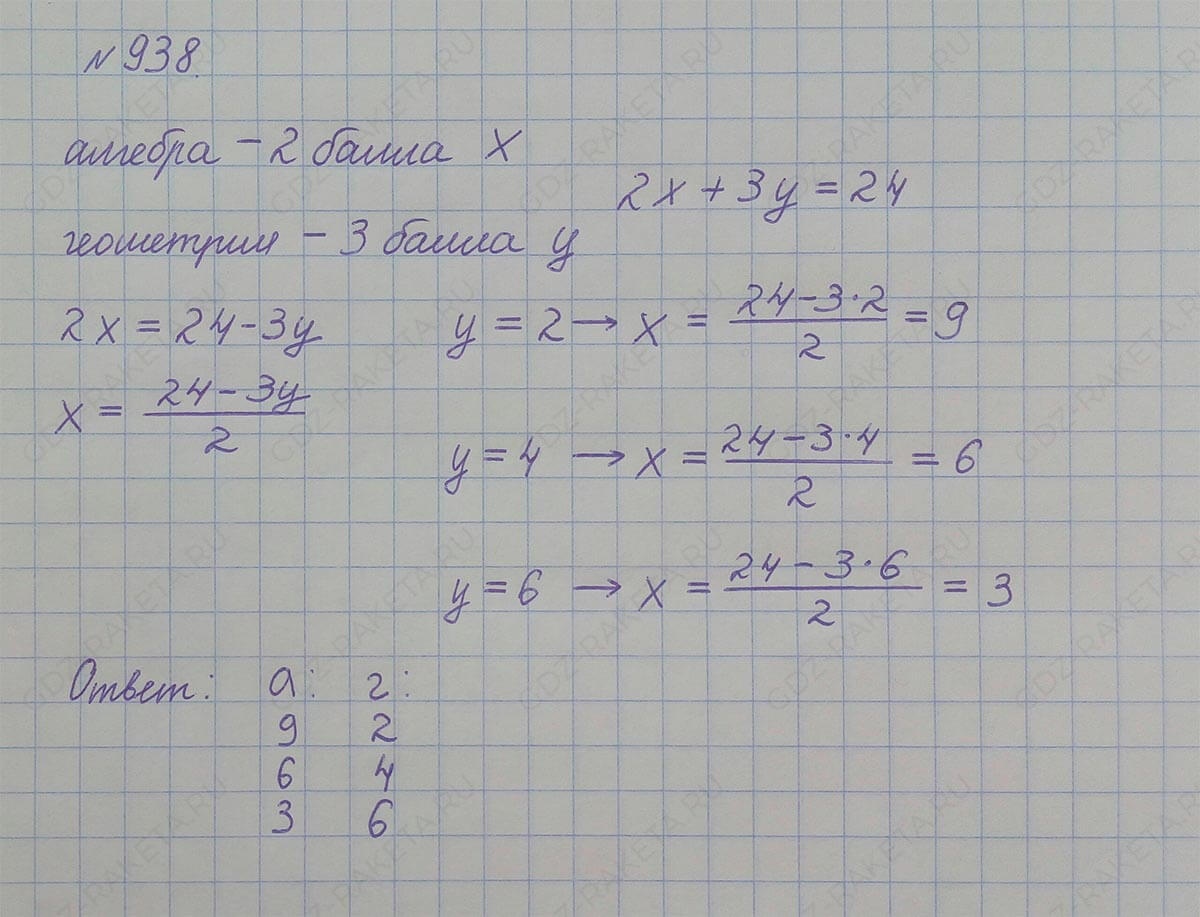 №938.
алгебра – 2 балла x
2x + 3y = 24
геометрия – 3 балла y
2x = 24 - 3y
x = (24 - 3y)/2
y = 2 → x = (24 - 3·2)/2 = 9
y = 4 → x = (24 - 3·4)/2 = 6
y = 6 → x = (24 - 3·6)/2 = 3
Ответ: а: г:
9 2
6 4
3 6
GDZ-RAKETA.RU